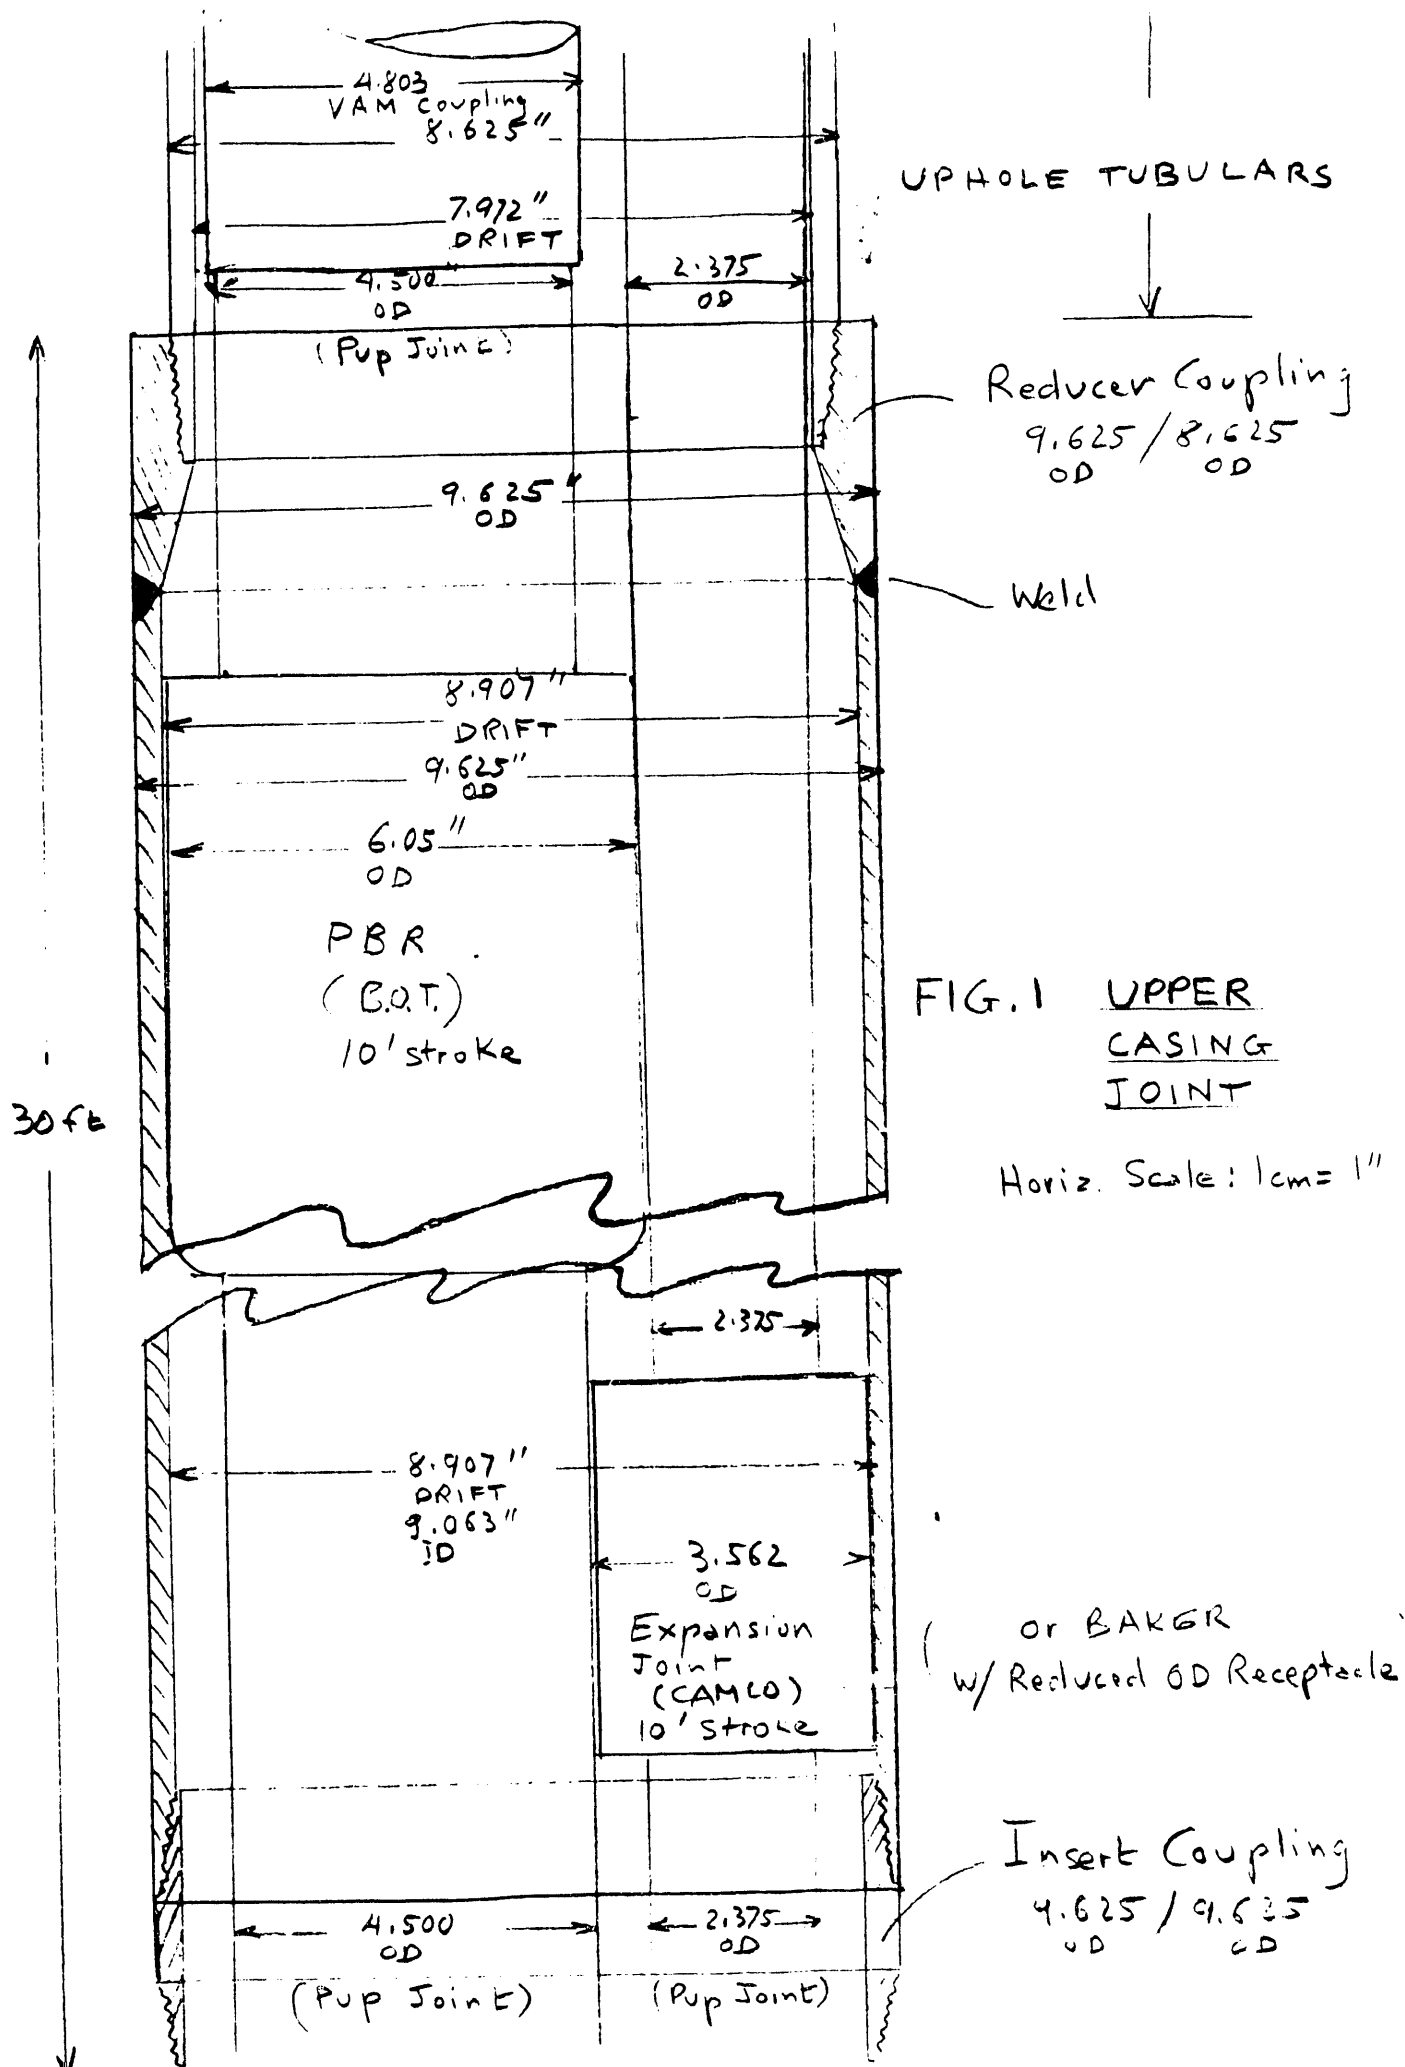 4.803
VAM Coupling
8.625"
UPHOLE TUBULARS
7.972"
DRIFT
4.500"
OD
2.375
OD
(Pup Joint)
Reducer Coupling
9.625 / 8.625
OD OD
9.625"
OD
Weld
8.907"
DRIFT
9.625"
OD
6.05"
OD
PBR
(B.O.T.)
10' stroke
FIG. 1 UPPER
CASING
JOINT
30 ft
Horiz. Scale: 1cm = 1"
2.375
8.907"
DRIFT
9.063"
ID
3.562
OD
Expansion
Joint
(CAMCO)
10' stroke
or BAKER
w/ Reduced OD Receptacle
Insert Coupling
9.625 / 9.625
OD OD
4.500
OD
2.375
OD
(Pup Joint)
(Pup Joint)